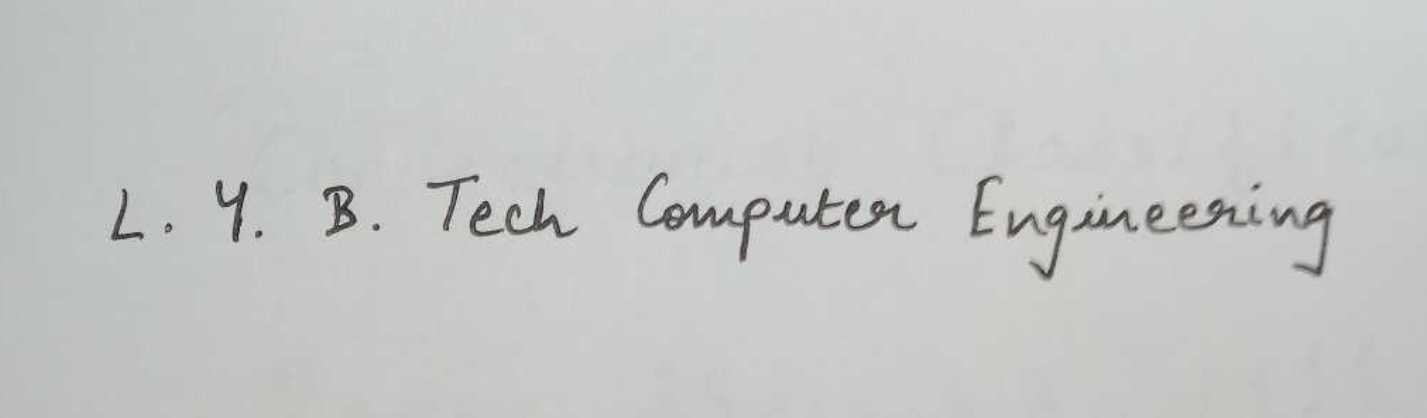 L. Y. B. Tech Computer Engineering